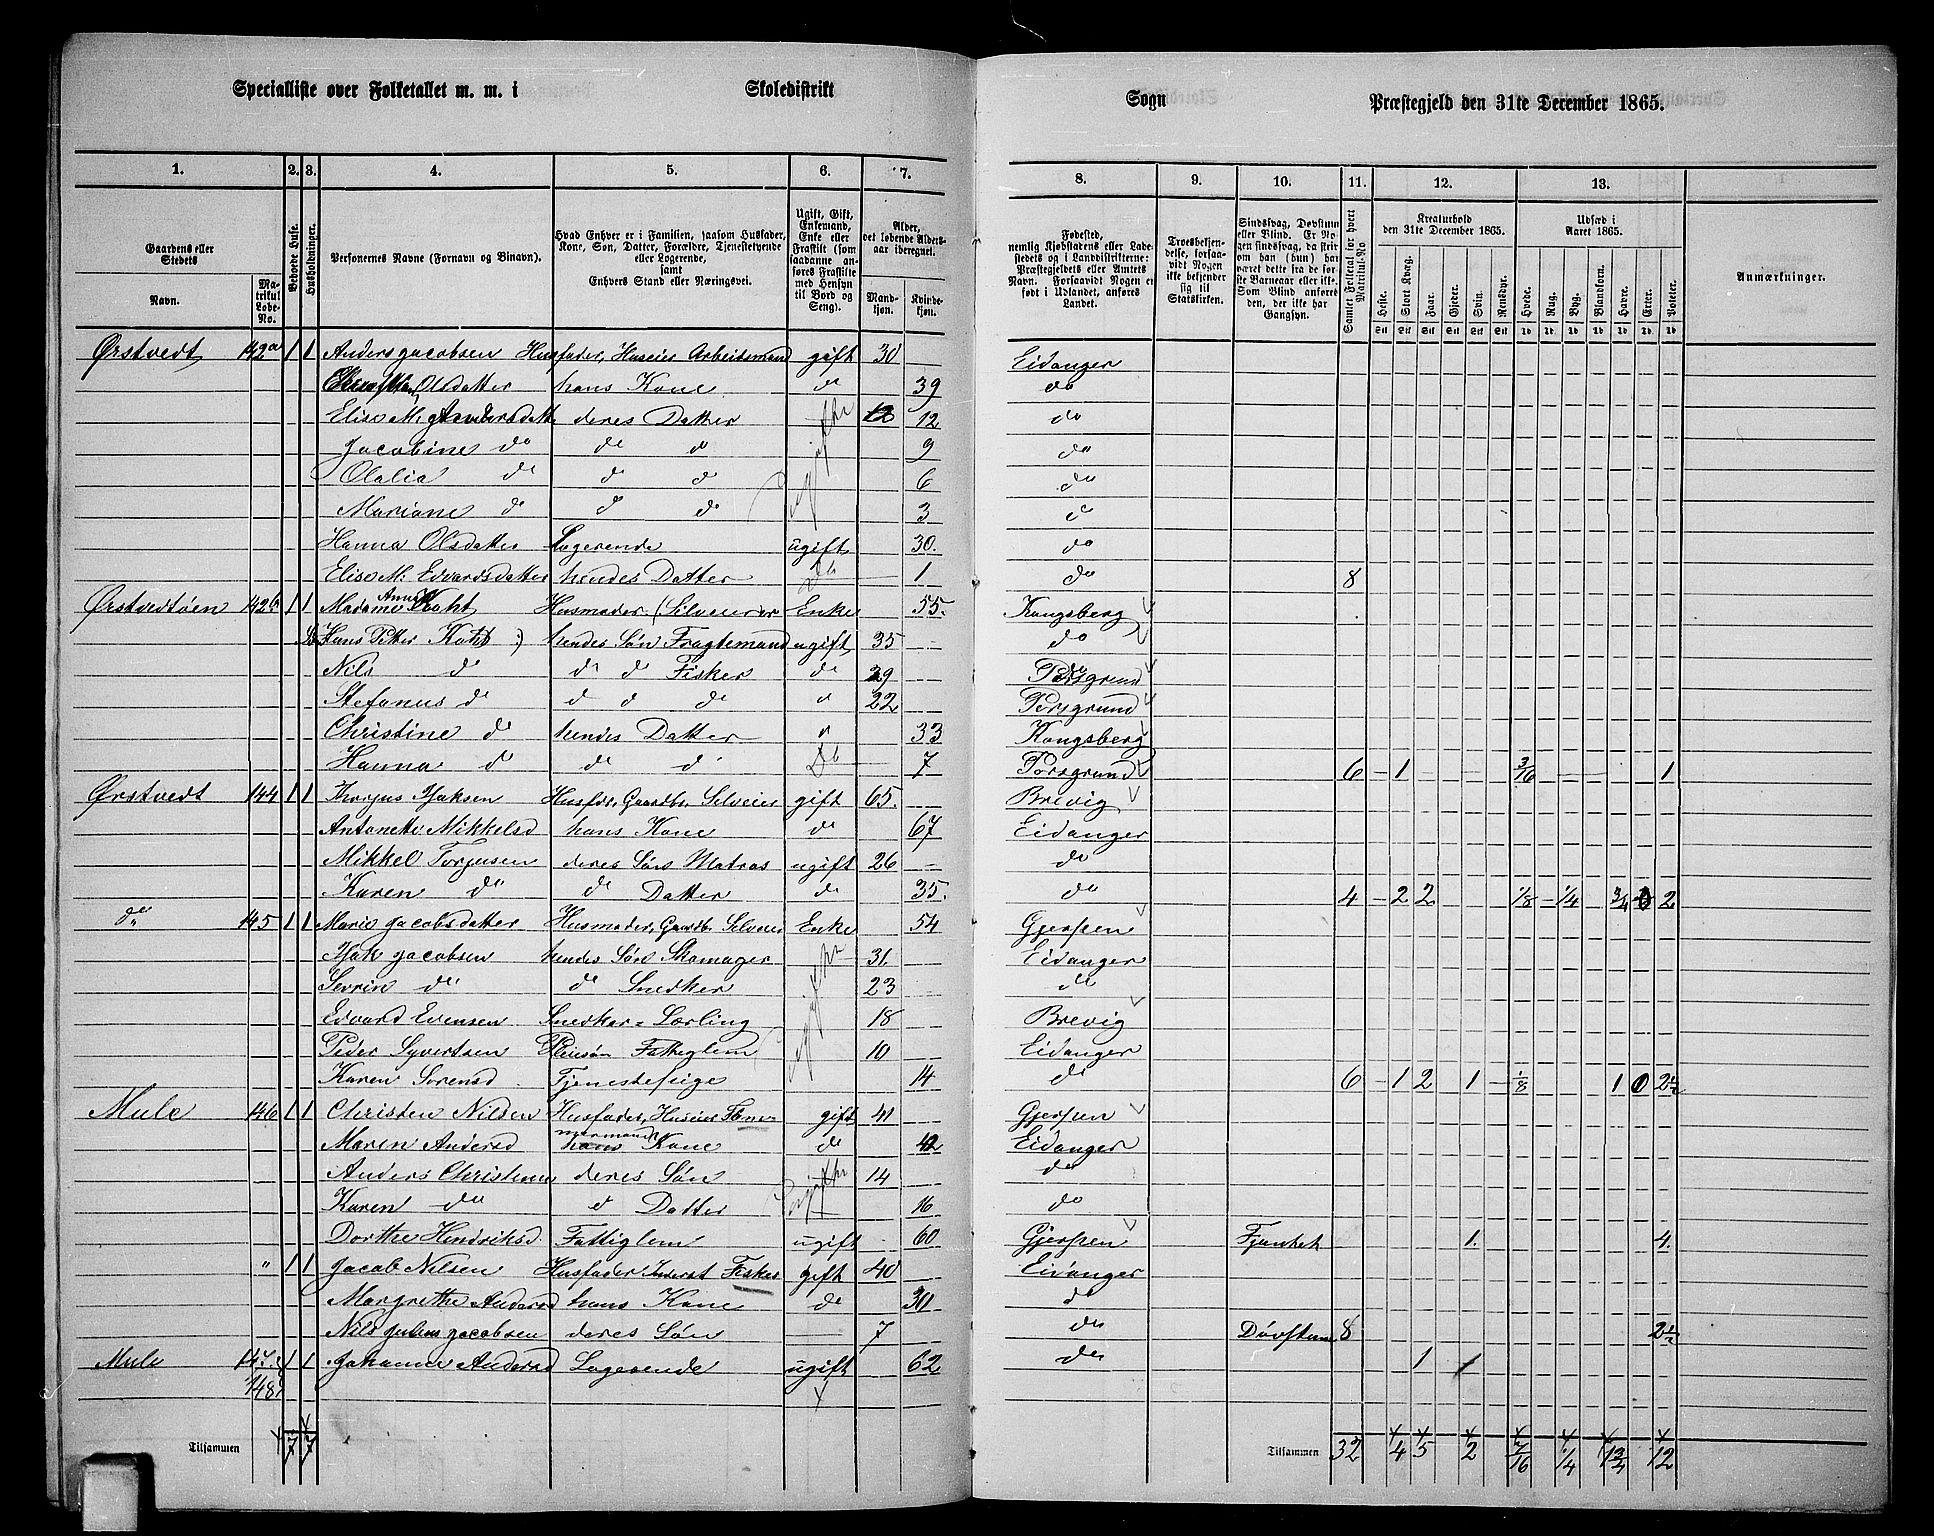 Specialliste over Folketallet m. m. i Skoledistrikt Sogn Præstegjeld den 31te December 1865.
1. 2. 3. 4. 5. 6. 7. 8. 9. 10. 11. 12. 13.
Gaardens eller Stedets
Navn.
Matrikul Løbe-No.
Beboede Huse.
Husholdninger.
Personernes Navne (Fornavn og Binavn).
Hvad Enhver er i Familien, saasom Husfader, Kone, Søn, Datter, Forældre, Tjenestetyende eller Logerende, samt Enhvers Stand eller Næringsvei.
Ugift, Gift, Enkemand, Enke eller Fraskilt (som saadanne anføres Fraskilte med Hensyn til Bord og Seng).
Alder, det løbende Aldersaar iberegnet.
Mandkjøn. Kvindekjøn.
Fødested, nemlig Kjøbstadens eller Ladestedets og i Landdistrikterne: Præstegjeldets eller Amtets Navn. Forsaavidt Nogen er født i Udlandet, anføres Landet.
Troesbekjendelse, forsaavidt Nogen ikke bekjender sig til Statskirken.
Sindssvag, Døvstum eller Blind. Er Nogen sindssvag, da skrives om han (hun) har været dette fra de første Barneaar eller ikke. Som Blind anføres den, der ikke har Gangsyn.
Samlet Folketal for hvert Matrikul-No
Kreaturhold den 31te December 1865.
Heste. Stort Kvæg. Faar. Gjeder. Svin. Rensdyr.
Udsæd i Aaret 1865.
Hvede. Rug. Byg. Blandkorn. Havre. Erter. Poteter.
Anmærkninger.
Ørstvedt 142a 1 1 Anders Jacobsen Husfader, Huseier Arbeidsmand gift 30 Eidanger
Olsdatter hans Kone do 39 do
Elise M. Andersdatt deres Datter ugifte 12 do
Jacobine do do d 9 do
Olalia do d d 6 do
Mariane do d do 3 d
Hanna Olsdatter Logerende ugift 30. do
Elise M. Edvardsdatter hendes Datter do 1 do 8
Ørstvedtøen 142b 1 1 Madame Anne Koht Husmoder (Selveier Enke 55. Kongsberg
Hans Petter Koht hendes Søn Fragtemand ugift 35 do
Nils d do d Fisker do 29 Porsgrund
Stefanus do d d do d 22 Porsgrund
Christine do hendes Datter d 33 Kongsberg
Hanna d do d do 7 Porsgrund 6 1 3/16 1
Ørstvedt 144 1 1 Isaksen Husfdr. Gaardbr. Selveier gift 65. Brevig
Antonette Mikkelsd hans Kone do 67 Eidanger
Mikkel Torjusen deres Søn Matros ugift 26 do
Karen do do Datter do 35. do 4 2 2 1/8 1/4 3/4 2
do 145 1 1 Marie Jacobsdatter Husmoder, Gaardb. Selveier Enke 54 Gjerpen
Isak Jacobsen hendes Søn Skomager ugifte 31. Eidanger
Sevrin do do Snedker 23 do
Edvard Evensen Snedker-Lærling 18 Brevig
Peder Syvertsen Pleiesøn Fattiglem 10 Eidanger
Karen Sørensd. Tjenestepige 14 do 6 1 2 1 1/8 1 0 2 1/2
Mule 146 1 1 Christen Nilsen Husfader, Huseier Tømmermand gift 41 Gjerpen
Maren Andersd hans Kone do 42 Eidanger
Anders Christensen deres Søn ugifte 14 do
Karen do d Datter 16 do
Dorthe Hendriksd Fattiglem ugift 60 Gjerpen Fjantet 1. 4.
" 1 1 Jacob Nilsen Husfader Inderst Fisker gift 40 Eidanger
Margrethe Andersd hans Kone do 30 d
Nils Julius Jacobsen deres Søn 7 do Døvstum 8 2 1/2
Mule 147 & 1 1 Johanne Andersd Logerende ugift 62 do 1 1
148
Tilsammen 7 7 Tilsammen 32 4 5 2 7/16 1/4 1 3/4 12